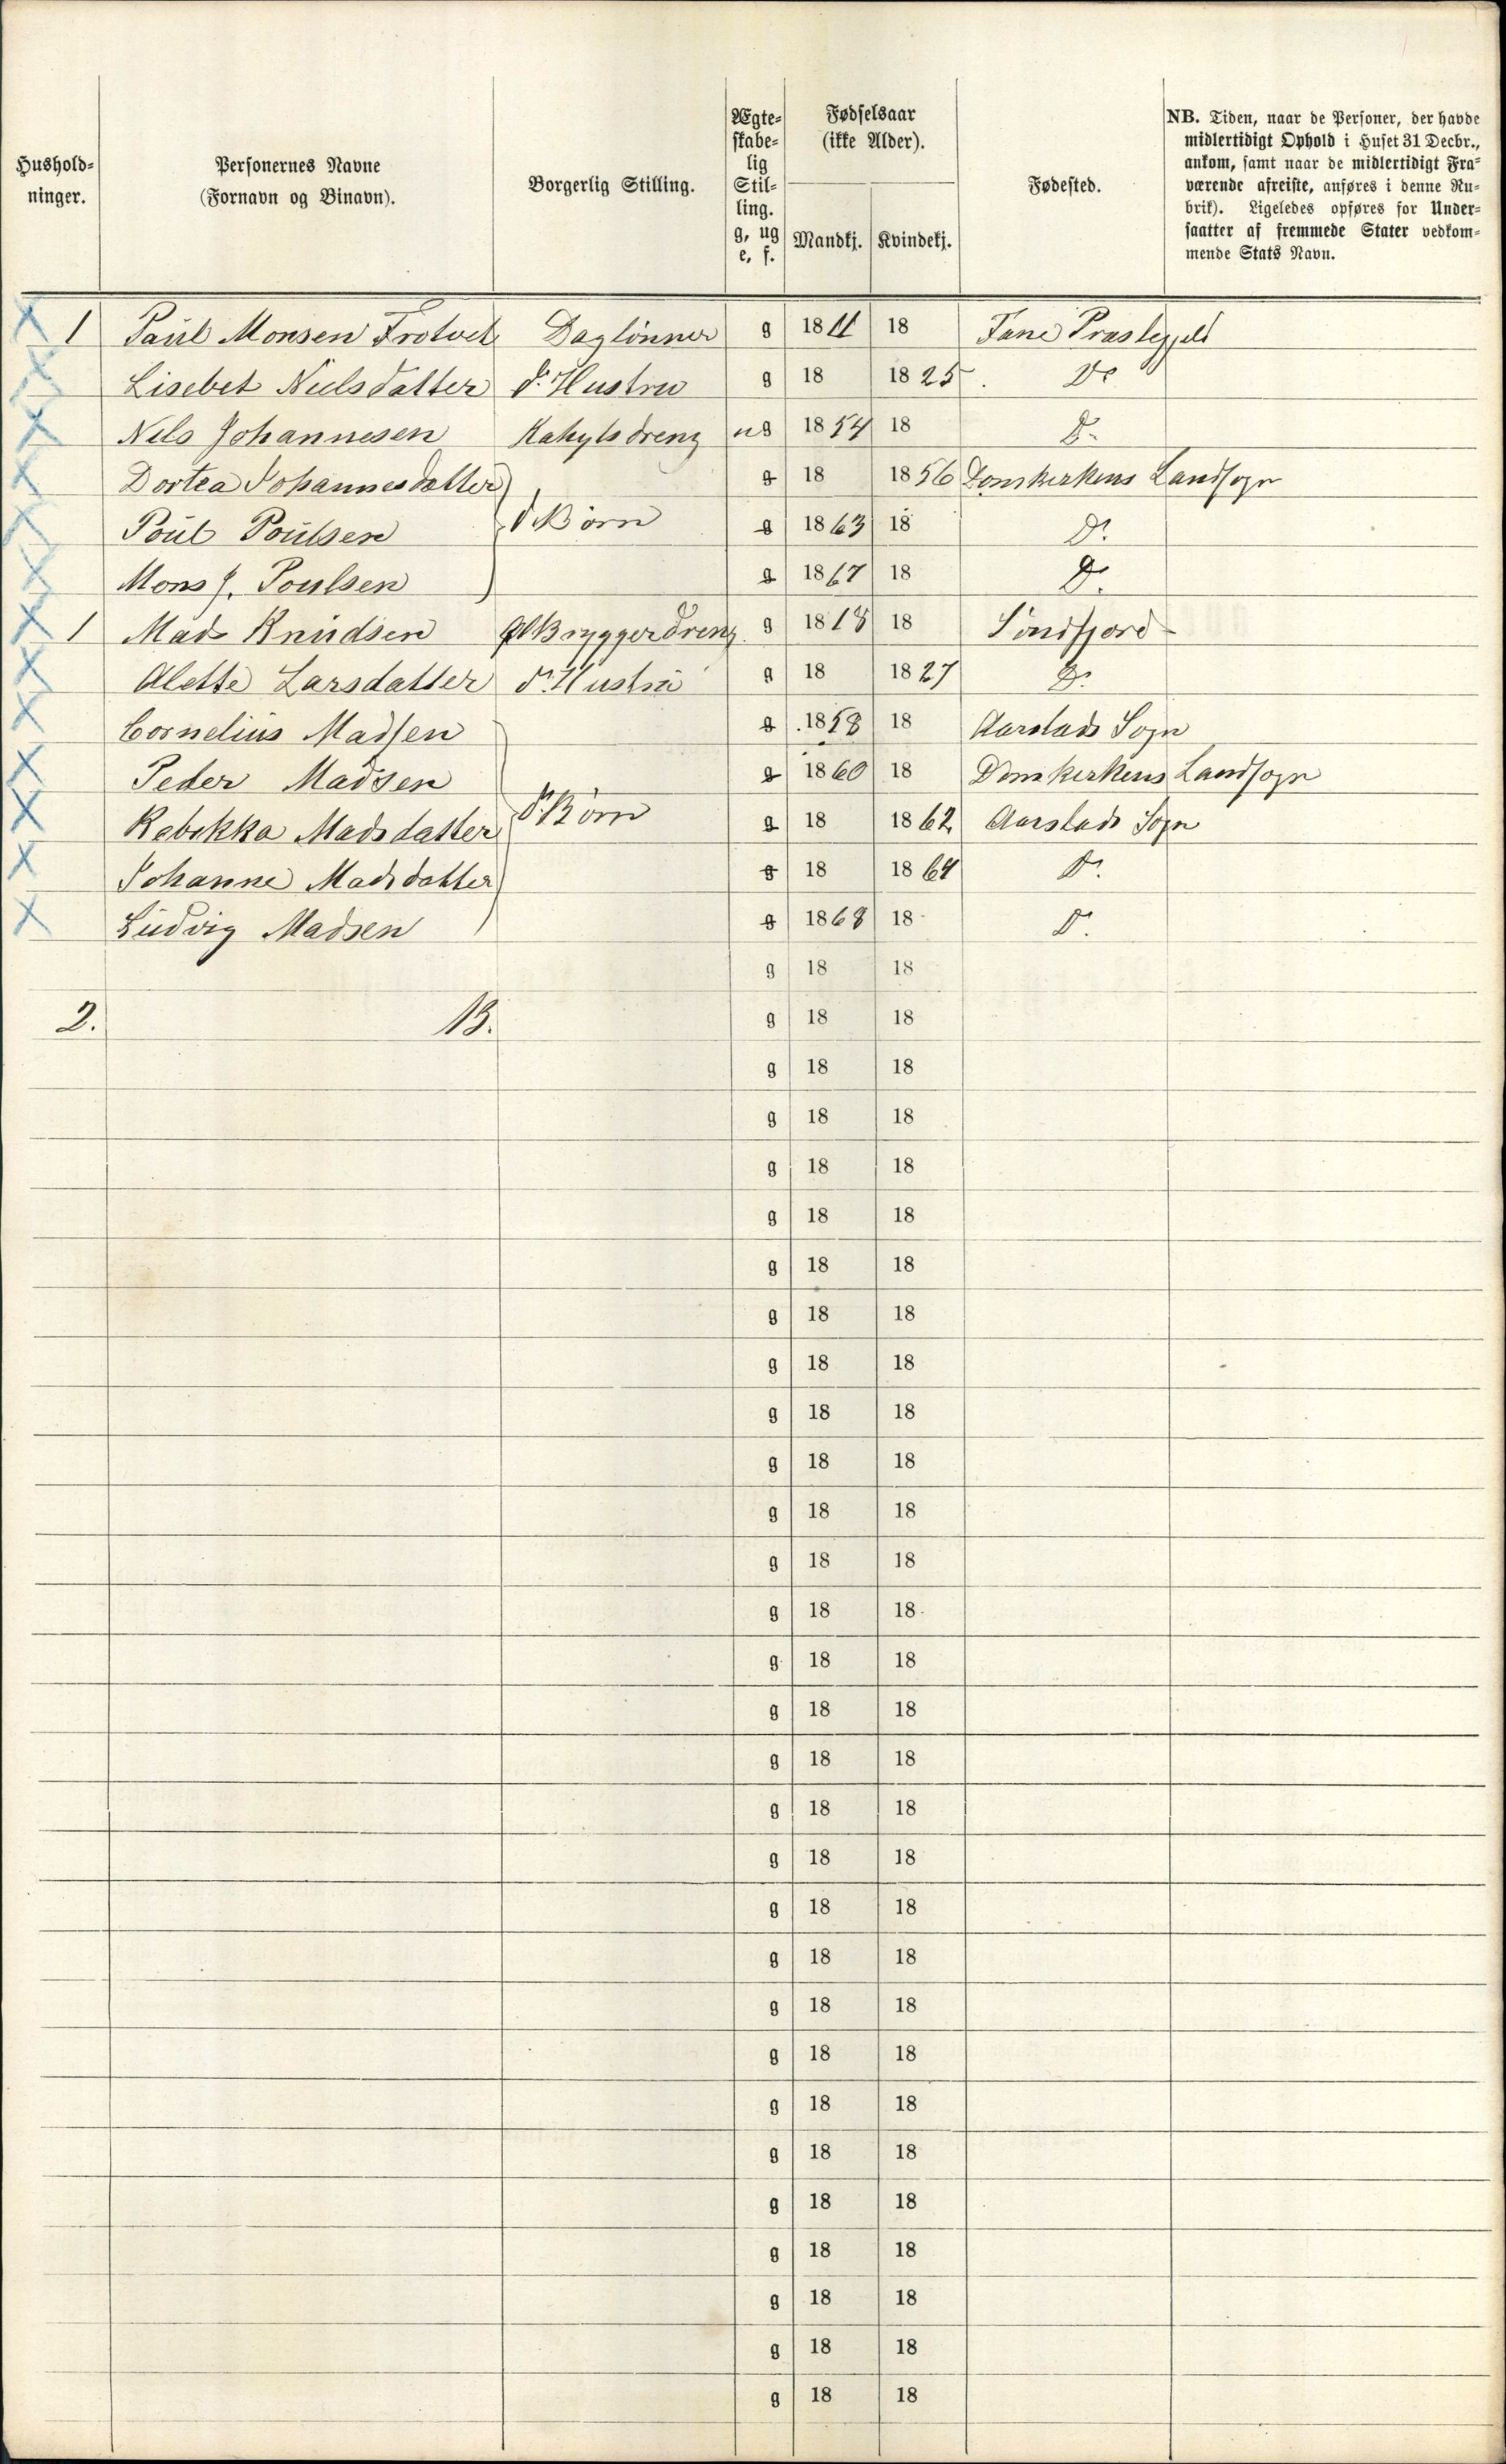 Hushold-
ninger.
Personernes Navne
(Fornavn og Binavn).
Borgerlig Stilling.
Ægte-
skabe-
lig
Stil-
ling.
g, ug
e, f.
Fødselsaar
(ikke Alder).
Mandkj. Kvindekj.
Fødested.
NB. Tiden, naar de Personer, der havde
midlertidigt Ophold i Huset 31 Decbr.,
ankom, samt naar de midlertidigt Fra-
værende afreiste, anføres i denne Ru-
brik). Ligeledes opføres for Under-
saatter af fremmede Stater vedkom-
mende Stats Navn.
1 Paul Monsen Trotvet Daglönner g 1811 18 Fane Prastegjeld
Lisebet Nielsdatter d. Hustru g 18 1825 Do
Nils Johannesen ug 1854 18 D.
Dortea Johannesdatter g 18 1856 Domkirkens Landsogn
Poul Poulsen d. Børn g 1863 18 D.
Mons J. Poulsen g 1867 18 D.
1 Mads Knudsen Ølbryggerdreng g 1818 18 Söndfjord
Alette Larsdatter d. Hustru g 18 1827 D.
Cornelius Madsen g 1858 18 Aarstads Sogn
Peder Madsen g 1860 18 Domkirkens Landsogn
Rebekka Madsdatter d. Börn g 18 1862 Aarstads Sogn
Johanne Madsdatter g 18 1864 D.
Ludvig Madsen g 1868 18 D.
g 18 18
2. 13. g 18 18
g 18 18
g 18 18
g 18 18
g 18 18
g 18 18
g 18 18
g 18 18
g 18 18
g 18 18
g 18 18
g 18 18
g 18 18
g 18 18
g 18 18
g 18 18
g 18 18
g 18 18
g 18 18
g 18 18
g 18 18
g 18 18
g 18 18
g 18 18
g 18 18
g 18 18
g 18 18
g 18 18
g 18 18